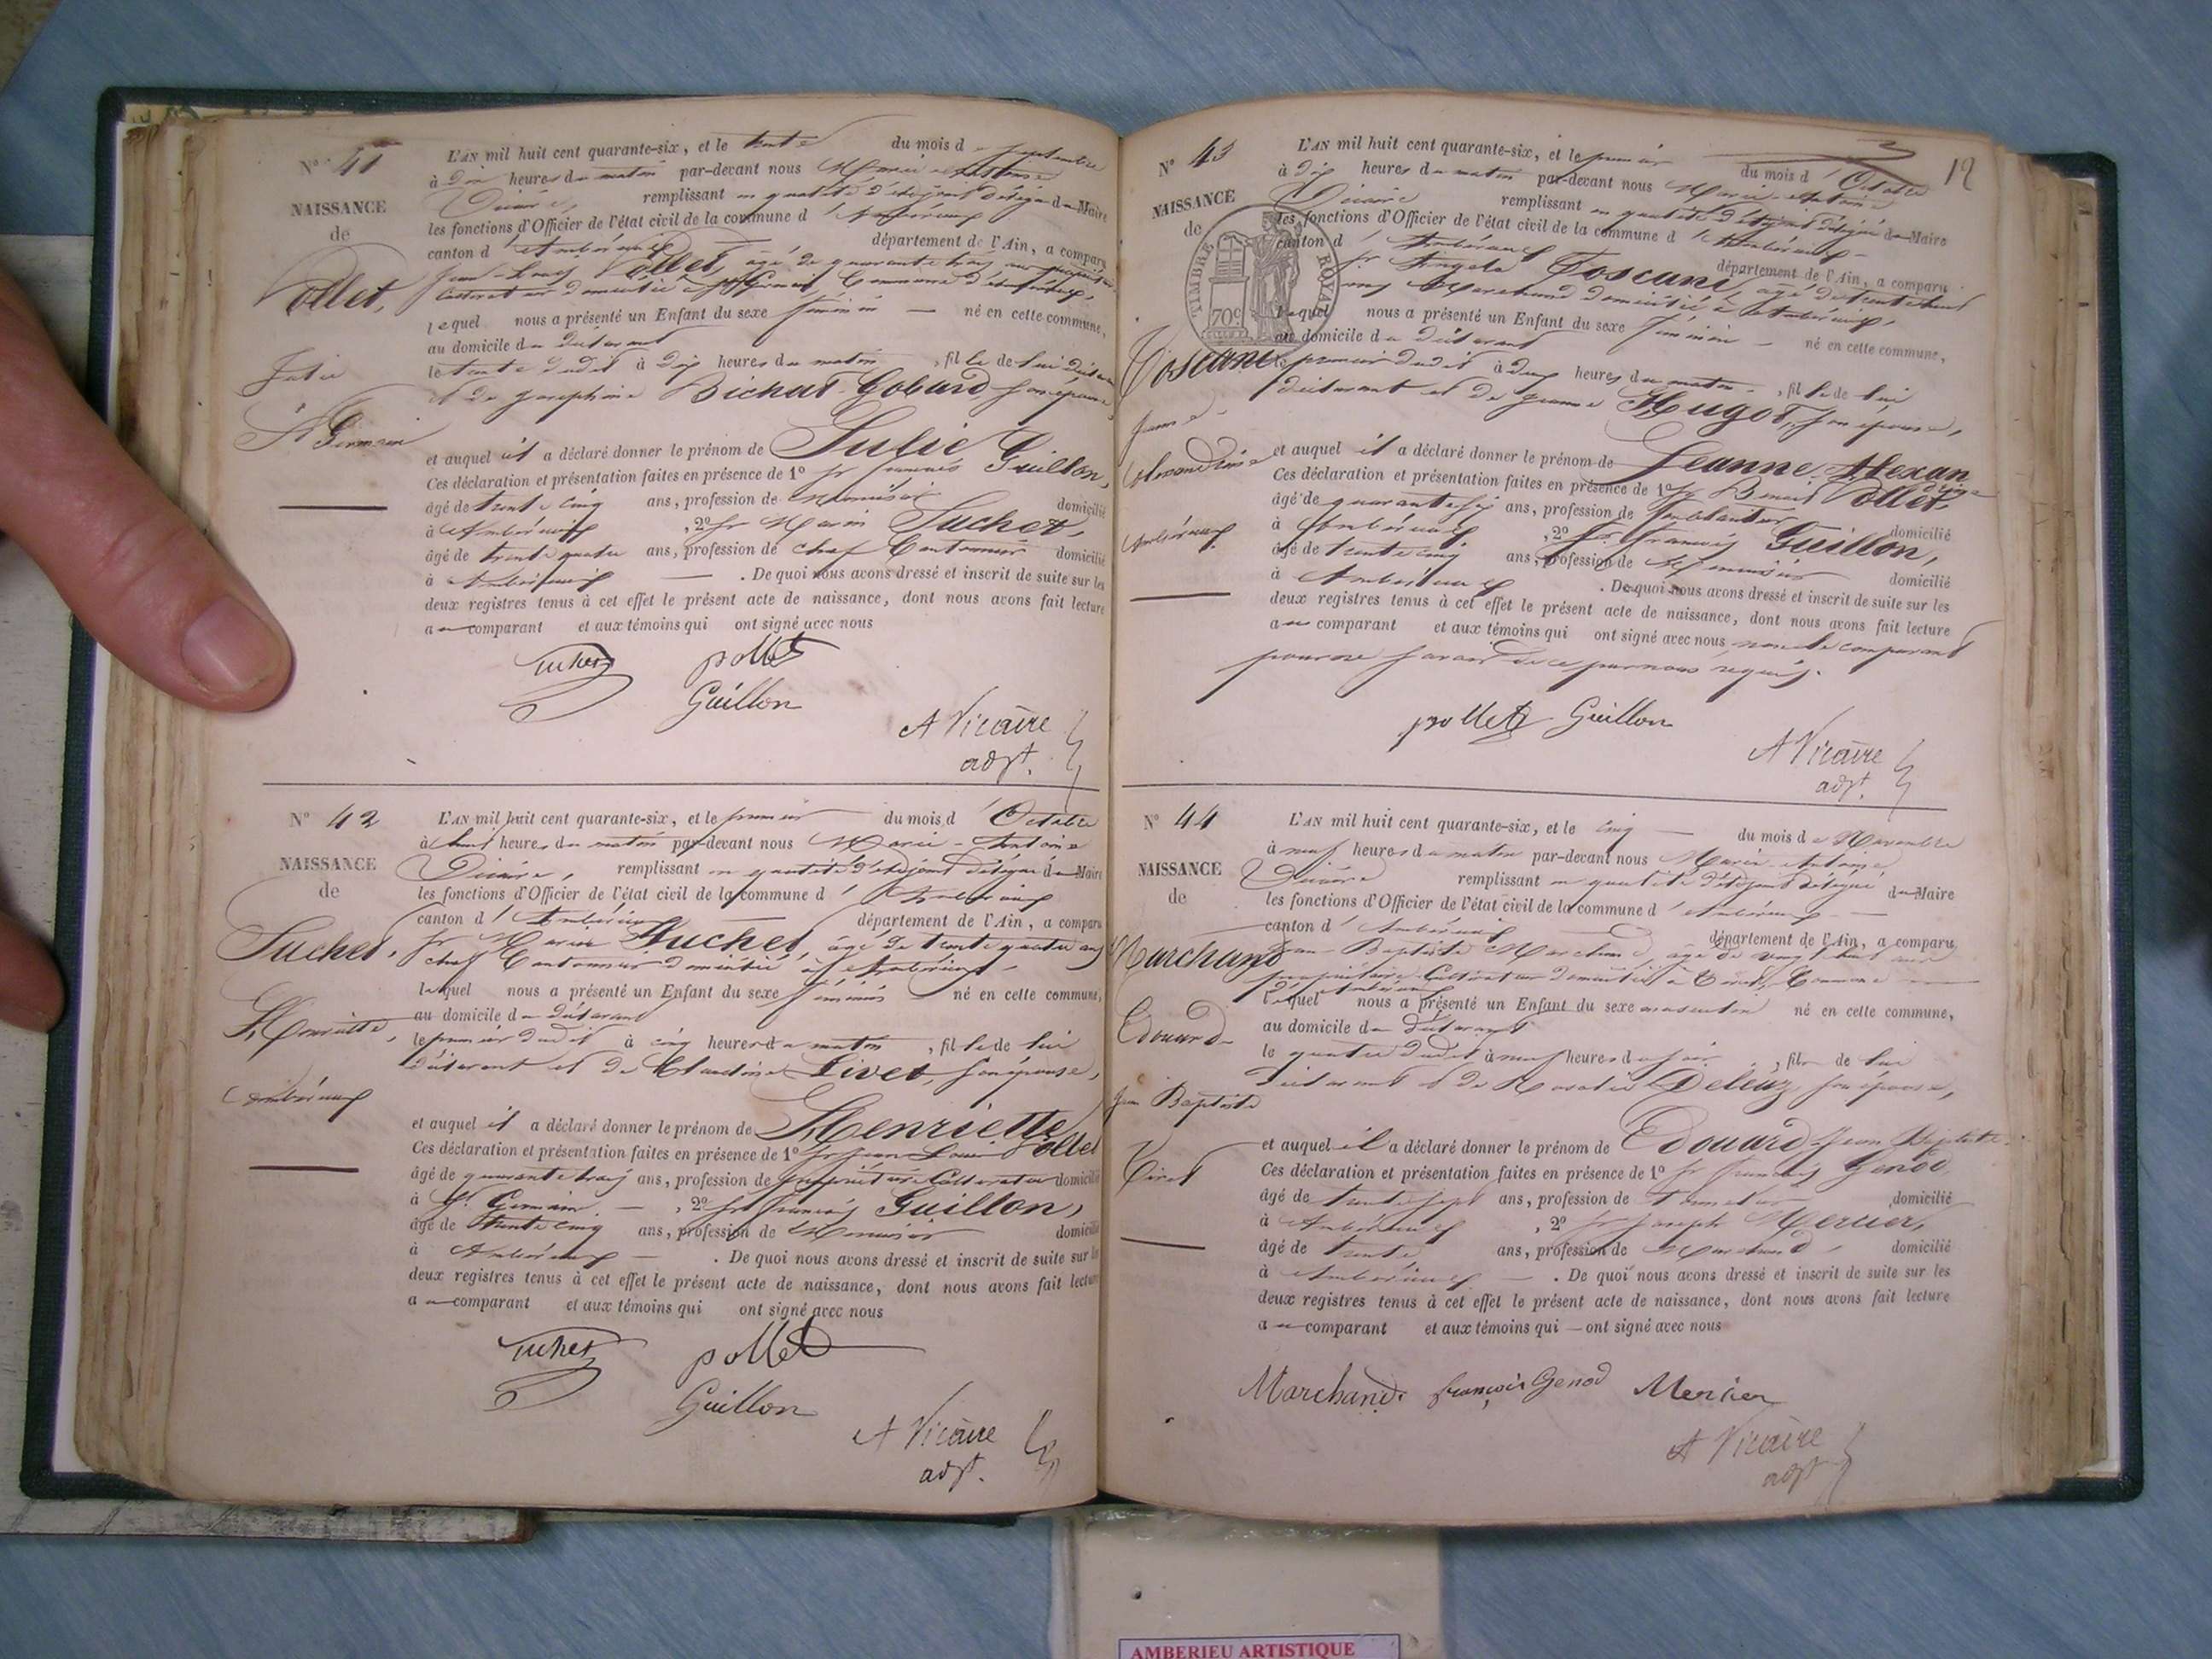 N° 41
NAISSANCE
de
Pollet,
Julie
St Germain
L'AN mil huit cent quarante-six, et le trente du mois de Septembre
à dix heures du matin par-devant nous Marie Antoine
Vicaire, remplissant en qualité d'adjoint délégué du Maire
les fonctions d'Officier de l'état civil de la commune d'Ambérieux
canton d'Ambérieux département de l'Ain, a comparu
Jean-Louis Pollet, agé de quarante trois ans propriétaire
Cultivateur domicilié à St Germain, Commune d'Ambérieux,
lequel nous a présenté un Enfant du sexe féminin — né en cette commune,
au domicile du déclarant
le trente dudit à dix heures du matin, fille de lui déclarant
et de Josephine Bichat-Gobard, son épouse,
et auquel il a déclaré donner le prénom de Julie
Ces déclaration et présentation faites en présence de 1° Sr françois Guillon,
âgé de trente cinq ans, profession de Menuisier domicilié
à Ambérieux, 2° Sr Marin Suchet,
âgé de trente quatre ans, profession de chef Cantonnier domicilié
à Ambérieux — . De quoi nous avons dressé et inscrit de suite sur les
deux registres tenus à cet effet le présent acte de naissance, dont nous avons fait lecture
au comparant et aux témoins qui ont signé avec nous
Suchet pollet
Guillon
A Vicaire
adjt.
N° 42
NAISSANCE
de
Suchet,
Henriette,
Ambérieux
L'AN mil huit cent quarante-six, et le premier du mois d'Octobre
à heures du matin par-devant nous Marie-Antoine
Vicaire, remplissant en qualité d'adjoint délégué du Maire
les fonctions d'Officier de l'état civil de la commune d'Ambérieux
canton d'Ambérieux département de l'Ain, a comparu
Sr Marin Suchet, âgé de trente quatre ans
chef Cantonnier domicilié à Ambérieux,
lequel nous a présenté un Enfant du sexe féminin né en cette commune,
au domicile du déclarant
le premier dudit à cinq heures du matin, fille de lui
déclarant et de Claudine Livet, son épouse,
et auquel il a déclaré donner le prénom de Henriette
Ces déclaration et présentation faites en présence de 1° Sr Jean Louis Pollet
âgé de quarante trois ans, profession de propriétaire Cultivateur domicilié
à St Germain. — , 2° Sr françois Guillon,
âgé de trente cinq ans, profession de Menuisier domicilié
à Ambérieux — . De quoi nous avons dressé et inscrit de suite sur les
deux registres tenus à cet effet le présent acte de naissance, dont nous avons fait lecture
au comparant et aux témoins qui ont signé avec nous
Suchet pollet
Guillon
A Vicaire
adjt.
12
N° 43
NAISSANCE
de
TIMBRE ROYAL
70c
Toscani
Jeanne
Alexandrine
Ambérieux
L'AN mil huit cent quarante-six, et le premier du mois d'Octobre
à dix heures du matin par-devant nous Marie-Antoine
Vicaire remplissant en qualité d'adjoint délégué du Maire
les fonctions d'Officier de l'état civil de la commune d'Ambérieux
canton d'Ambérieux département de l'Ain, a comparu
Sr Angelo Toscani, agé de trente
Marchand domicilié à Ambérieux,
lequel nous a présenté un Enfant du sexe féminin — né en cette commune,
au domicile du déclarant
le premier dudit à deux heures du matin, fille de lui
déclarant et de Jeanne Hugot, son épouse,
et auquel il a déclaré donner le prénom de Jeanne Alexandrine
Ces déclaration et présentation faites en présence de 1° Sr Benoit Pollet,
âgé de quarante six ans, profession de ferblantier domicilié
à Ambérieux, 2° Sr françois Guillon,
âgé de trente cinq ans, profession de Menuisier domicilié
à Ambérieux . De quoi nous avons dressé et inscrit de suite sur les
deux registres tenus à cet effet le présent acte de naissance, dont nous avons fait lecture
au comparant et aux témoins qui ont signé avec nous, non le comparant
pour ne savoir de ce par nous requis.
pollet Guillon
A Vicaire
adjt.
N° 44
NAISSANCE
de
Marchand
Edouard
Jean Baptiste
Tiret
L'AN mil huit cent quarante-six, et le cinq — du mois de Novembre
à neuf heures du matin par-devant nous Marie-Antoine
Vicaire remplissant en qualité d'adjoint délégué du Maire
les fonctions d'Officier de l'état civil de la commune d'Ambérieux —
canton d'Ambérieux département de l'Ain, a comparu
Jean-Baptiste Marchand, agé de vingt huit ans
propriétaire-Cultivateur domicilié à Tiret, Commune
d'Ambérieux
lequel nous a présenté un Enfant du sexe masculin né en cette commune,
au domicile du déclarant
le quatre dudit à neuf heures du soir, fils de lui
déclarant et de Rosalie Deleuz, son épouse,
et auquel il a déclaré donner le prénom de Edouard, Jean Baptiste.
Ces déclaration et présentation faites en présence de 1° Sr françois Genod
âgé de trente sept ans, profession de domicilié
à Ambérieux, 2° Sr Joseph Mercier,
âgé de trente ans, profession de Marchand domicilié
à Ambérieux — . De quoi nous avons dressé et inscrit de suite sur les
deux registres tenus à cet effet le présent acte de naissance, dont nous avons fait lecture
au comparant et aux témoins qui — ont signé avec nous
Marchand. françois Genod Mercier
A Vicaire
adjt
AMBERIEU ARTISTIQUE